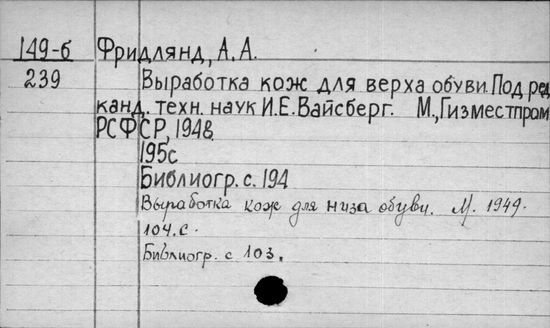 149-б Фридлянд, А.А.
239 Выработка кож для верха обуви. Под ред
канд. техн. наук И.Е. Вайсберг. М., Гизместпром
РСФСР, 1948.
195с
Библиогр. с. 194
Выработка кож для низа обуви. М. 1949.
104.с.
Библиогр. с 103.